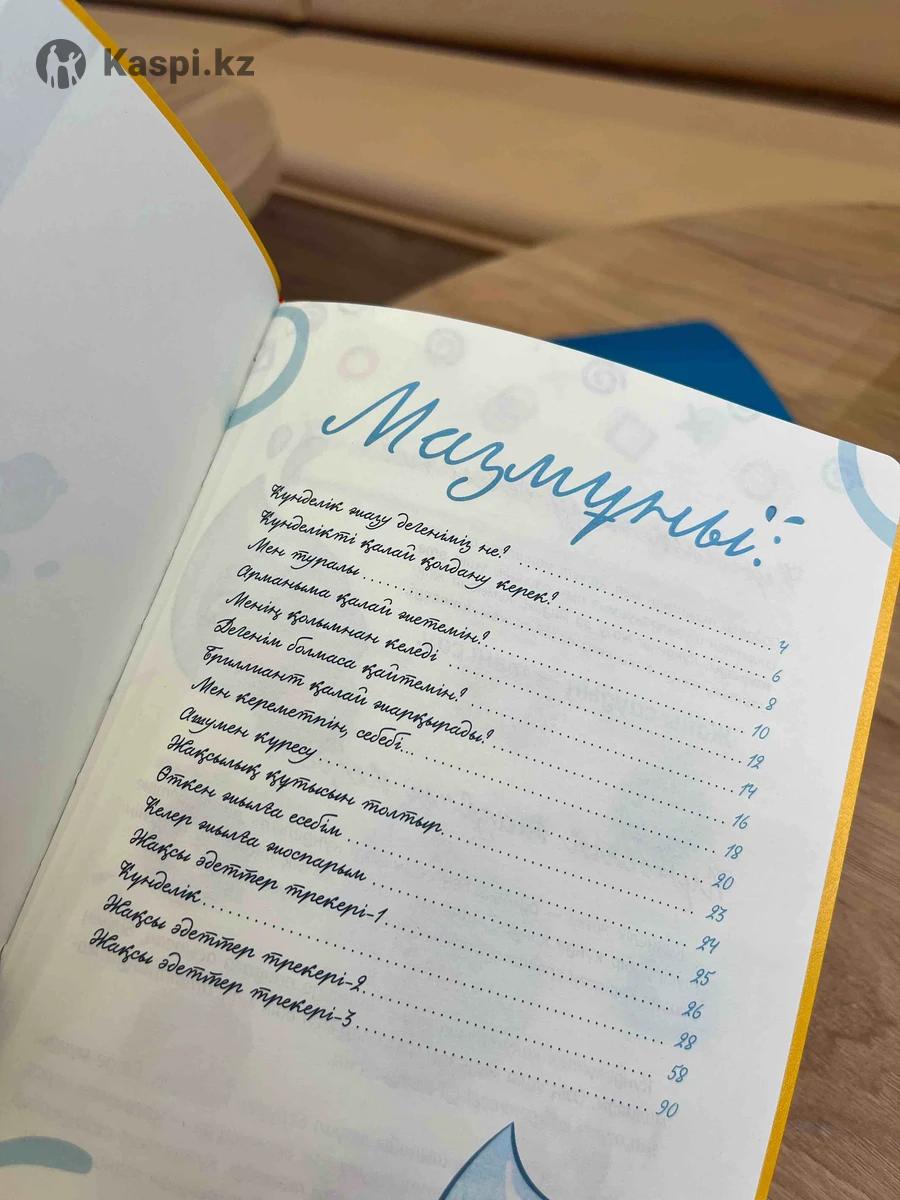 Kaspi.kz
Мазмұны:
Күнделік жазу дегеніміз не? 4
Күнделікті қалай қолдану керек? 6
Мен туралы 8
Арманыма қалай жетемін? 10
Менің қолымнан келеді 12
Дегенім болмаса қайтемін? 14
Бриллиант қалай жарқырады? 16
Мен кереметпін, себебі... 18
Ашумен күресу 20
Жақсылық құтысын толтыр 23
Өткен жылға есебім 24
Келер жылға жоспарым 25
Жақсы әдеттер трекері-1 26
Күнделік 28
Жақсы әдеттер трекері-2 58
Жақсы әдеттер трекері-3 90